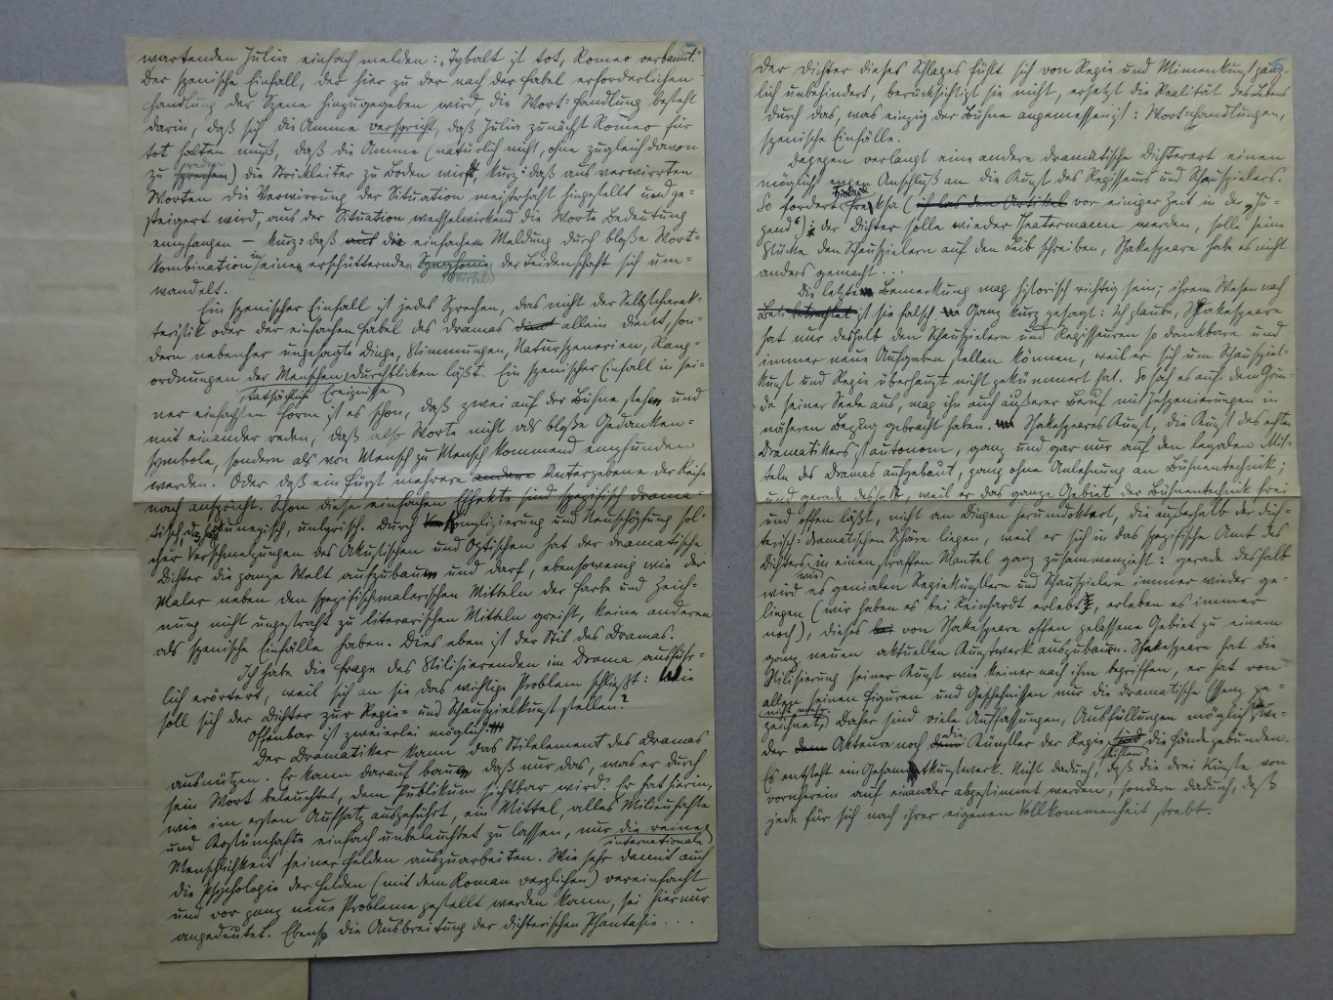 wartenden Julia einfach melden: „Tybalt ist tot, Romeo verbannt."
Der szenische Einfall, der hier zu der nach der Fabel erforderlichen
Handlung der Szene hinzugegeben wird, die Wort-Handlung besteht
darin, daß sich die Amme verspricht, daß Julia zunächst Romeo für
tot halten muß, daß die Amme (natürlich nicht, ohne zugleich davon
zu sprechen) die Strickleiter zu Boden wirft, kurz: daß aus verwirrten
Worten die Verwirrung der Situation meisterhaft hingestellt und ge-
steigert wird, aus der Situation wechselwirkend die Worte Bedeutung
empfangen – kurz: daß aus die einfachen Meldung durch bloße Wort-
kombination einen erschütternden Symphonie der Leidenschaft sich um-
wandelt.
Ein szenischer Einfall ist jedes Sprechen, das nicht der Selbstcharak-
teristik oder der einfachen Fabel des Dramas allein dient, son-
dern nebenher ungesagte Dinge, Stimmungen, Naturszenerien, Rang-
ordnungen der Menschen, durchblicken läßt. Ein szenischer Einfall in sei-
tatsächliche Ereignisse
ner einfachsten Form ist es schon, daß zwei auf der Bühne stehen und
mit einander reden, daß also Worte nicht als bloße Gedanken-
symbole, sondern als von Mensch zu Mensch kommend empfunden
werden. Oder daß ein Fürst mehrere andere Untergebene der Reihe
nach anspricht. Schon diese einfachen Effekte sind spezifisch drama-
tisch, unepisch, unlyrisch. Durch Komplizierung und Neuschöpfung sol-
cher Verschmelzungen des Akustischen und Optischen hat der dramatische
Dichter die ganze Welt aufzubauen und darf, ebensowenig wie der
Maler neben den spezifisch malerischen Mitteln der Farbe und Zeich-
nung nicht ungestraft zu literarischen Mitteln greift, keine anderen
als szenische Einfälle haben. Dies eben ist der Stil des Dramas.
Ich habe die Frage des Stilisierenden im Drama ausführ-
lich erörtert, weil sich an sie das wichtige Problem schließt: Wie
soll sich der Dichter zur Regie- und Schauspielkunst stellen?
Offenbar ist zweierlei möglich:
Der Dramatiker kann das Stilelement des Dramas
ausnützen. Er kann darauf bauen, daß nur das, was er durch
sein Wort beleuchtet, dem Publikum sichtbar wird. Er hat hierin,
wie im ersten Aufsatz ausgeführt, ein Mittel, alles Milieuhafte
und Kostümhafte einfach unbeleuchtet zu lassen, nur die reine
internationale
Menschlichkeit seiner Helden auszuarbeiten. Wie sehr damit auch
die Psychologie der Helden (mit dem Roman verglichen) vereinfacht
und vor ganz neue Probleme gestellt werden kann, sei hier nur
angedeutet. Ebenso die Ausbreitung der dichterischen Phantasie...
Der Dichter dieses Schlages fühlt sich von Regie und Mimenkunst gänz-
lich unbehindert, berücksichtigt sie nicht, ersetzt die Realität des Lebens
durch das, was einzig der Bühne angemessen ist: Worthandlungen,
szenische Einfälle.
Dagegen verlangt eine andere dramatische Dichterart einen
möglichst engen Anschluß an die Kunst des Regisseurs und Schauspielers.
So fordert Freksa (ich las den Artikel vor einiger Zeit in der „Ju-
gend"): der Dichter solle wieder Theatermann werden, solle seine
Stücke den Schauspielern auf den Leib schreiben, Shakespeare habe es nicht
anders gemacht...
Die letzte Bemerkung mag historisch richtig sein; ihrem Wesen nach
ist sie falsch. Ganz kurz gesagt: Ich glaube, Shakespeare
hat nur deshalb den Schauspielern und Regisseuren so dankbare und
immer neue Aufgaben stellen können, weil er sich um Schauspiel-
kunst und Regie überhaupt nicht gekümmert hat. So sah es auf dem Grun-
de seiner Seele aus, mag ihn auch äußerer Beruf mit Inszenierungen in
näheren Bezug gebracht haben. Shakespeares Kunst, die Kunst des echten
Dramatikers, ist autonom, ganz und gar nur auf den legalen Mit-
teln des Dramas aufgebaut, ganz ohne Anlehnung an Bühnentechnik;
und gerade deshalb, weil er das ganze Gebiet der Bühnentechnik frei
und offen läßt, nicht an Dingen herumdoktert, die außerhalb der dich-
terisch-dramatischen Sphäre liegen, weil er sich in das spezifische Amt des
Dichters wie in einen straffen Mantel ganz zusammenzieht: gerade deshalb
wird es genialen Regiekünstlern und Schauspielern immer wieder ge-
lingen (wir haben es bei Reinhardt erlebt, erleben es immer
noch), dieses von Shakespeare offen gelassene Gebiet zu einem
ganz neuen aktuellen Kunstwerk auszubauen. Shakespeare hat die
Stilisierung seiner Kunst wie keiner nach ihm begriffen, er hat von
allen seinen Figuren und Geschehnissen nur die dramatische Essenz ge-
nichts mehr
zeichnet, daher sind viele Auffassungen, Ausfüllungen möglich, we-
der dem Akteure noch die Künstler der Regie sind die Hände gebunden.
Es entsteht ein Gesamtkunstwerk. Nicht dadurch, daß die drei Künste von
vornherein auf einander abgestimmt werden, sondern dadurch, daß
jede für sich nach ihrer eigenen Vollkommenheit strebt.